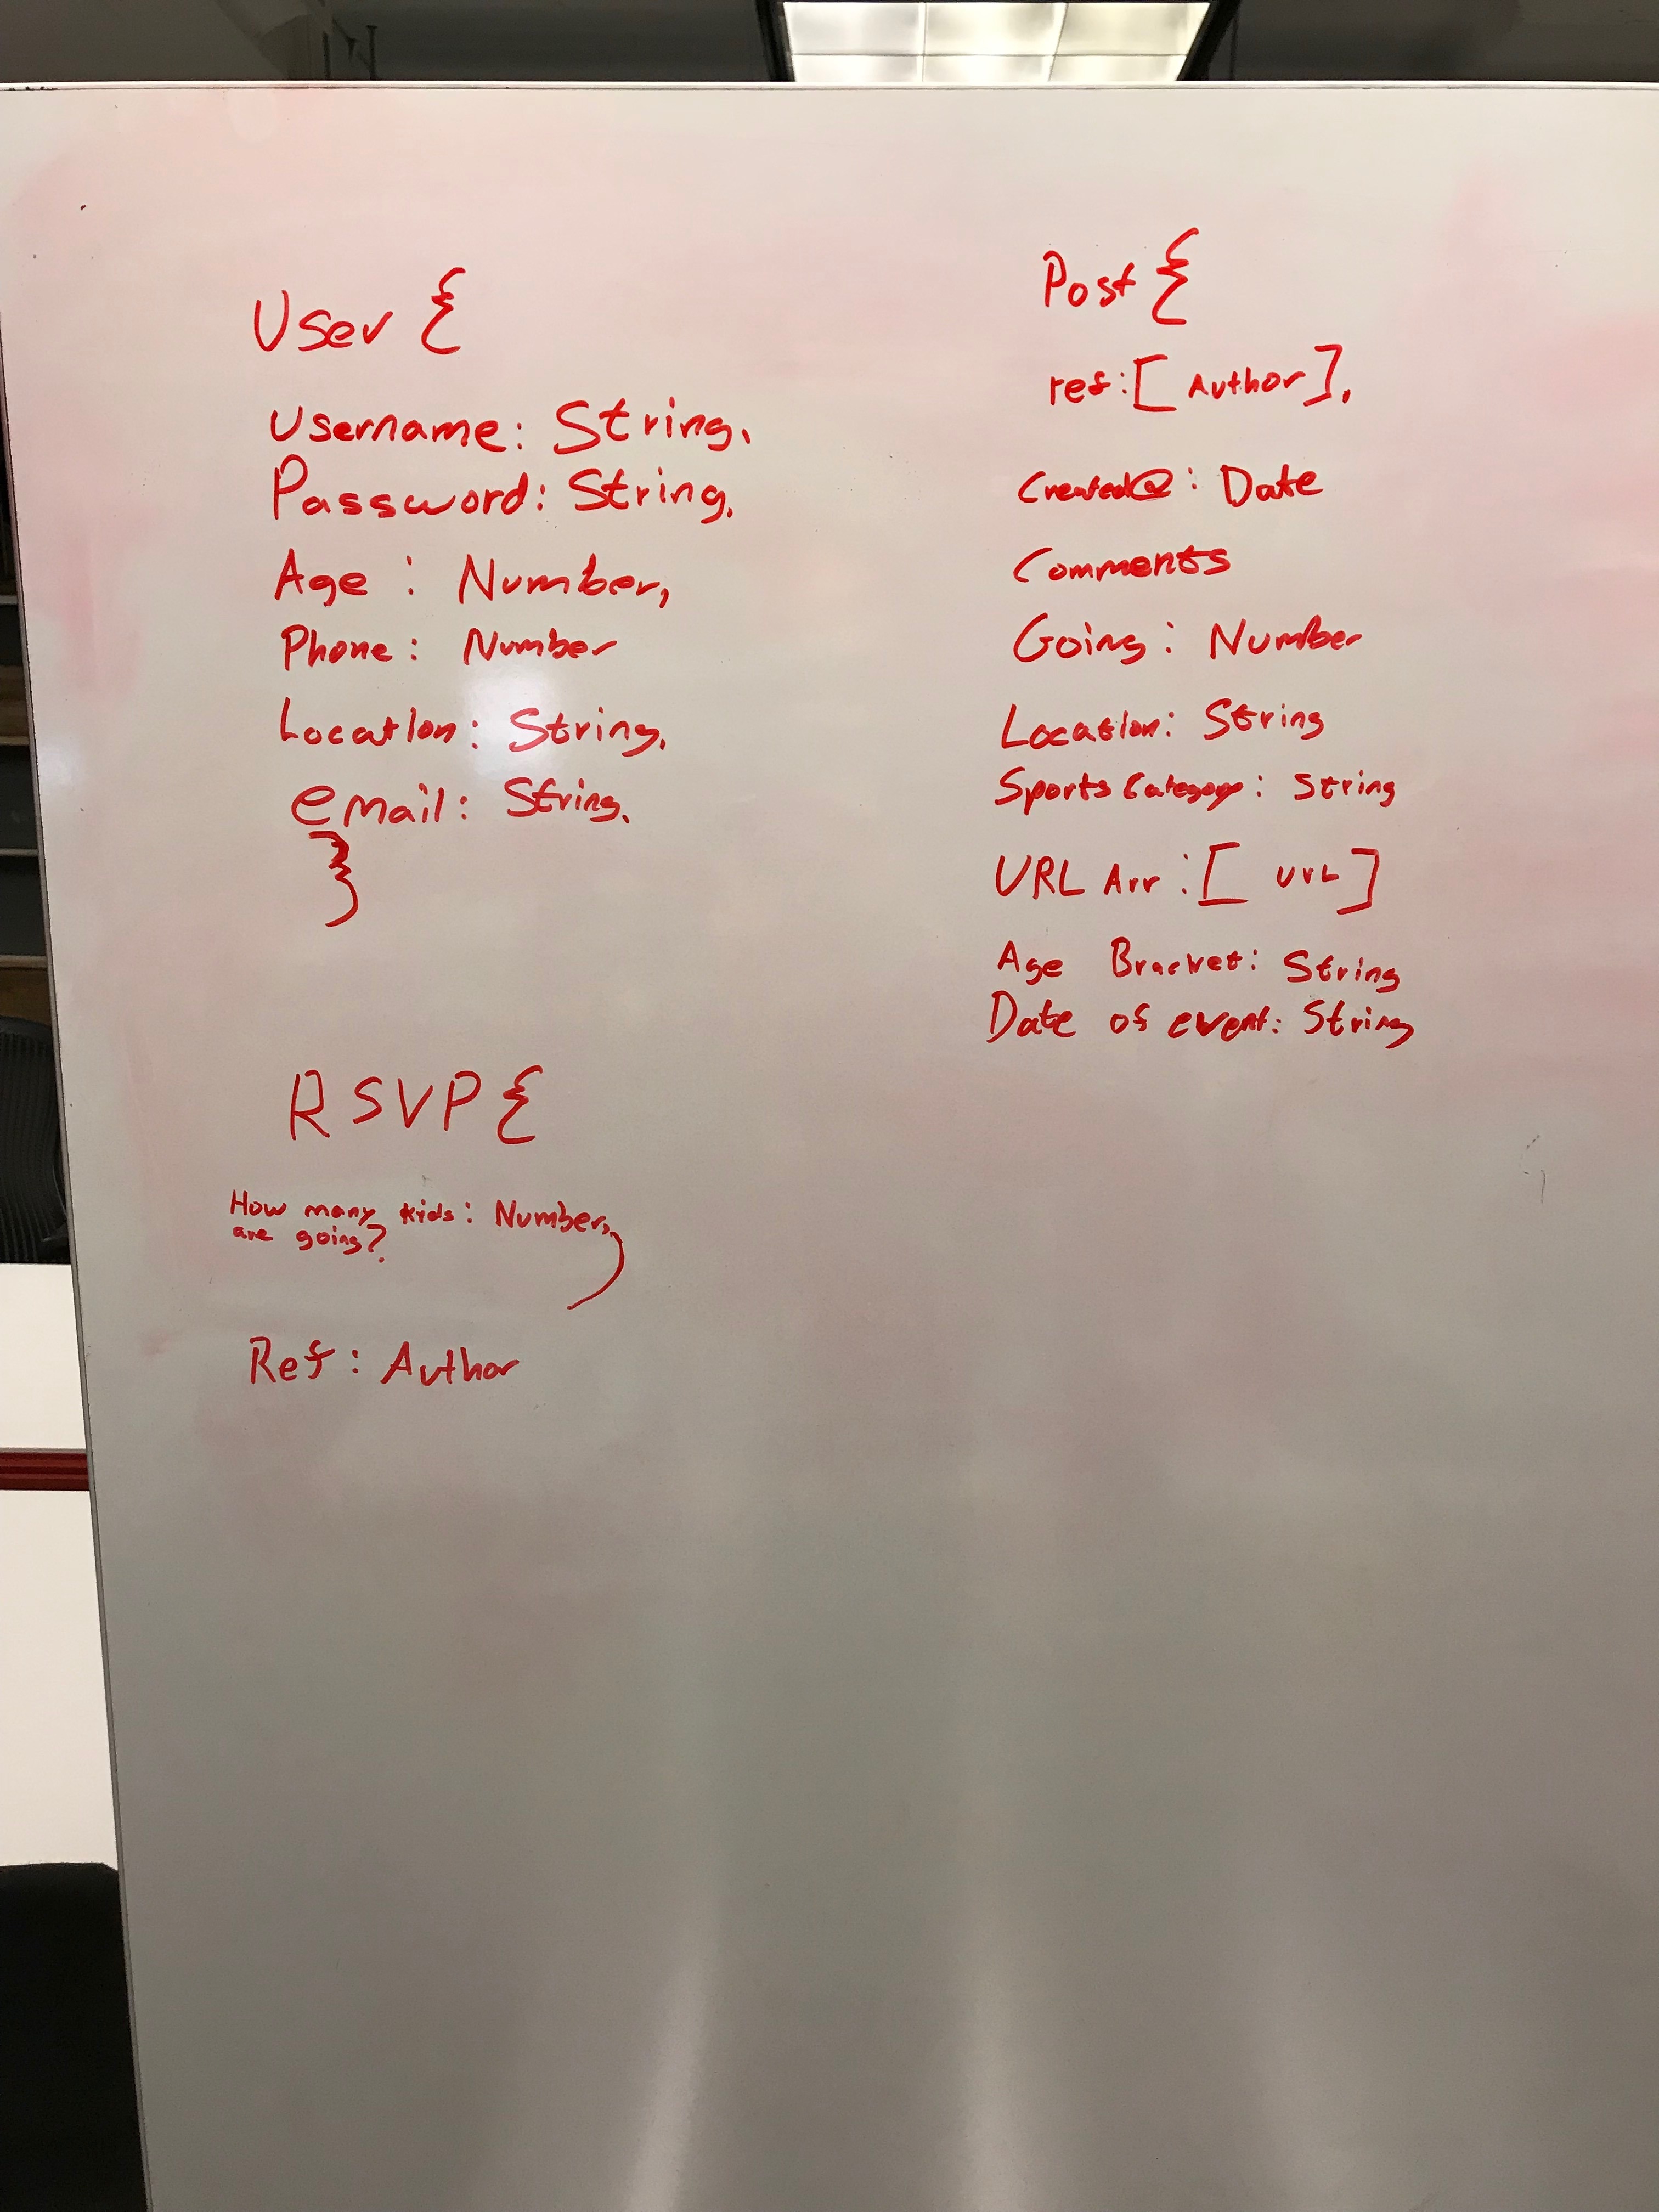 User {
Username: String,
Password: String,
Age : Number,
Phone: Number
Location: String,
email: String,
}
RSVP {
How many kids: Number,
are going?
Ref: Author
Post {
ref: [ Author ],
Created@ : Date
Comments
Going: Number
Location: String
Sports Category: String
URL Arr : [ url ]
Age Bracket: String
Date of event: String